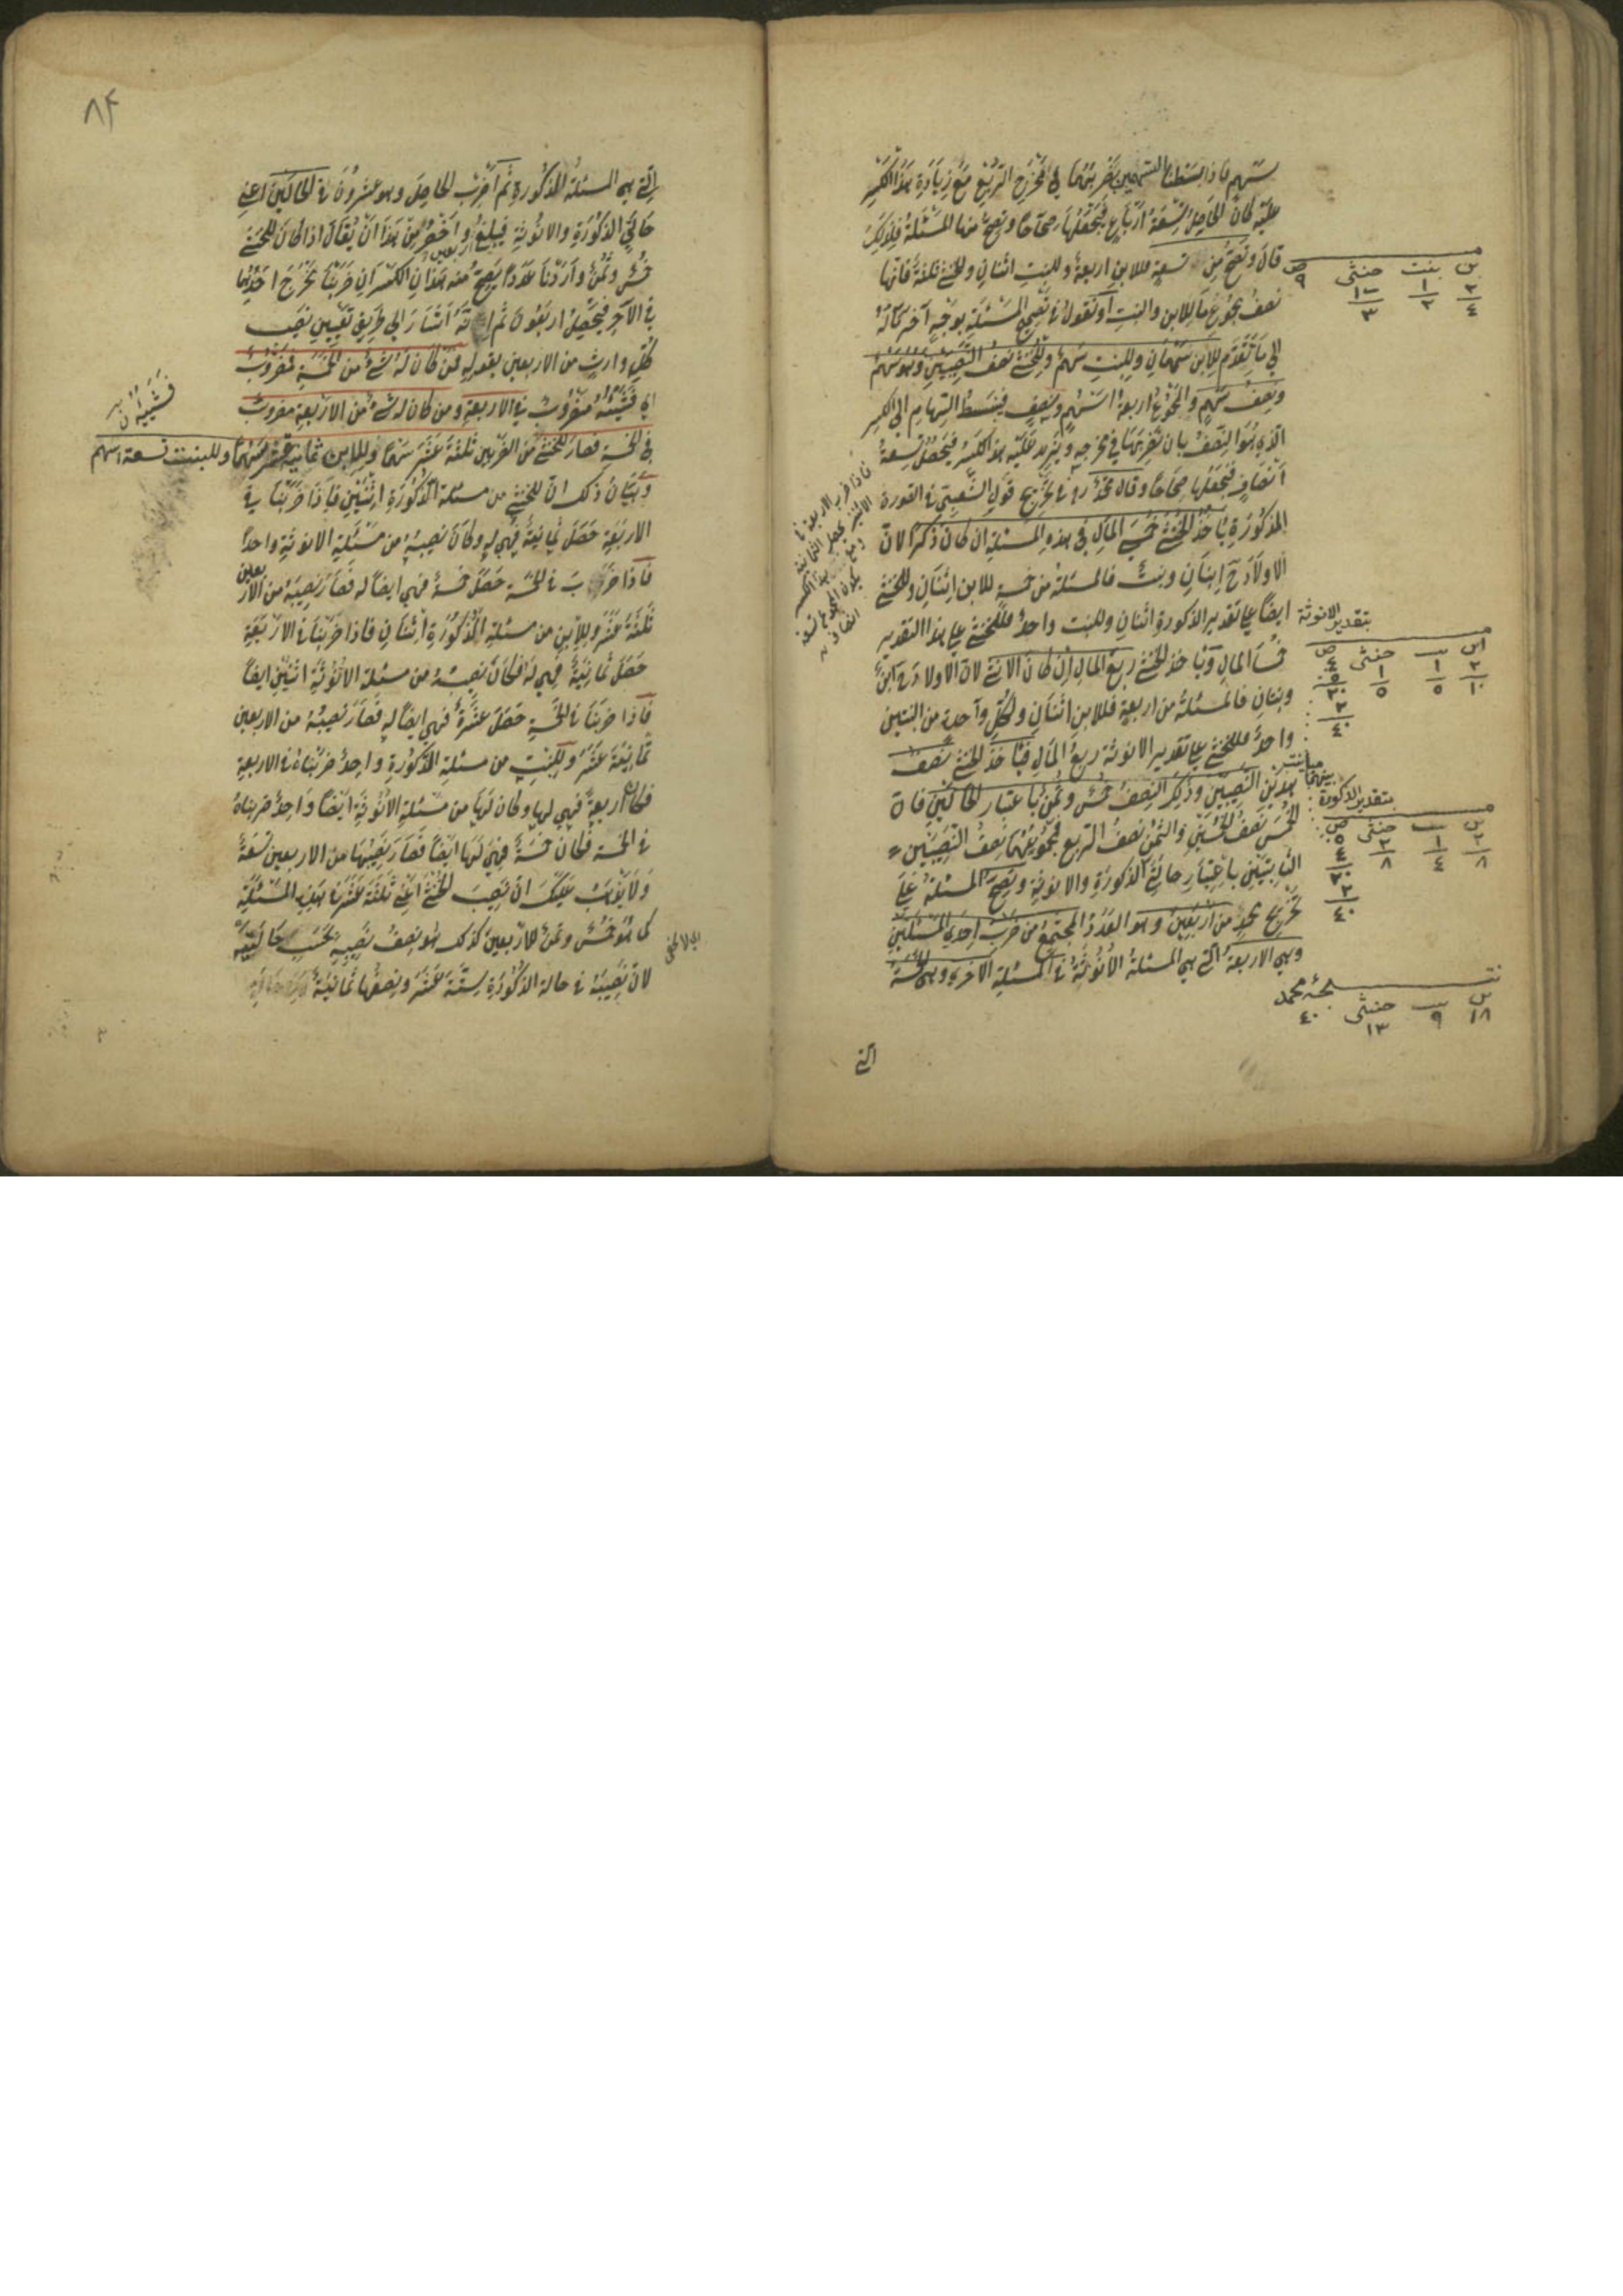 سهم فاذا بسطنا السهمين بضربهما في مخرج الربع مع زيادة هذا الكسر
عليه كان الحاصل تسعة ارباع فتجعلها صحاحا وتصح منها المسئلة فلذلك
قال وتصح من تسعة للابن اربعة وللبنت اثنان وللخنثى ثلثة فانها
نصف مجموع ما للابن والبنت او نقول في تصحيح المسئلة بوجه آخر مآله
الى ما تقدم للابن سهمان وللبنت سهم وللخنثى نصف النصيبين وهو سهم
ونصف سهم والمجموع اربعة اسهم ونصف فيبسط السهام الى الكسر
الذي هو النصف بان تضربها في مخرجه ويزيد عليه هذا الكسر فيحصل تسعة
انصاف فتجعلها صحاحا وقال محمد ره في تخريج قول الشعبي في الصورة
المذكورة ياخذ الخنثى خمسي المال في هذه المسئلة ان كان ذكرا لان
الاولاد ح ابنان وبنت فالمسئلة من خمسة للابن اثنان وللخنثى
ايضا على تقدير الذكورة اثنان وللبنت واحد فللخنثى على هذا التقدير
خمسا المال وياخذ الخنثى ربع المال ان كان الانثى لان الاولاد ح ابن
وبنتان فالمسئلة من اربعة فللابن اثنان ولكل واحدة من البنتين
واحد فللخنثى على تقدير الانوثة ربع المال فياخذ الخنثى نصف
هذين النصيبين وذلك النصف خمس وثمن باعتبار الحالتين فان
الخمس نصف الخمسين والثمن نصف الربع فمجموعهما نصف النصيبين
الثابتين باعتبار حالتي الذكورة والانوثة وتصح المسئلة على
تخريج محمد من اربعين وهو العدد المجتمع من ضرب احدى المسئلتين
وهي الاربعة التي هي المسئلة الانوثة في المسئلة الاخرى وهي الخمسة
التي
ابن بنت خنثى
٢ ١
٤ ٢ ٣
٩
بتقدير الانوثة
٢ ١ ١
١٠ ٥ ٥
٤
٥
٢٠
٢
٤٠
مباينة بينهما
بتقدير الذكورة
٢ ١ ٢
٨ ٤ ٨
٥
٤
٢٠
٢
٤٠
خنثى
١٨ ٩ ١٣
٤٠
٨٤
التي هي المسئلة المذكورة ثم اضرب الحاصل وهو عشرون في الحالتين اعني
حالتي الذكورة والانوثة فيبلغ اربعين واخصر من هذا ان يقال اذا كان للخنثى
خمس وثمن واردنا عددا يصح منه هذان الكسران ضربنا مخرج احدهما
في الآخر فيحصل اربعون ثم انه اشار الى طريق تعيين نصيب
كل وارث من الاربعين بقوله فمن كان له شئ من الخمسة فمضروب
اي فشيئه مضروب في الاربعة ومن كان له شئ من الاربعة مضروب
في الخمسة فصار للخنثى من الضربين ثلثة عشر سهما وللابن ثمانية عشر سهما وللبنت تسعة اسهم
وبيان ذلك ان للخنثى من مسئلة الذكورة اثنين فاذا ضربنا في
الاربعة حصل ثمانية فهي له وكان نصيبه من مسئلة الانوثة واحدا
فاذا ضرب في الخمسة حصل خمسة فهي ايضا له فصار نصيبه من الاربعين
ثلثة عشر وللابن من مسئلة الذكورة اثنان فاذا ضربنا في الاربعة
حصل ثمانية فهي له فكان نصيبه من مسئلة الانوثة اثنين ايضا
فاذا ضربنا في الخمسة حصل عشرة فهي ايضا له فصار نصيبه من الاربعين
ثمانية عشر وللبنت من مسئلة الذكورة واحد ضربناه في الاربعة
فكان اربعة فهي لها وكان لها من مسئلة الانوثة ايضا واحد ضربناه
في الخمسة فكان خمسة فهي لها ايضا فصار نصيبها من الاربعين تسعة
ولا يذهب عليك ان نصيب الخنثى اعني ثلثة عشر من هذه المسئلة
كما هو خمس وثمن للاربعين كذلك هو نصف نصيبه بحسب حالتيه
لان نصيبه في حالة الذكورة ستة عشر ونصفها ثمانية